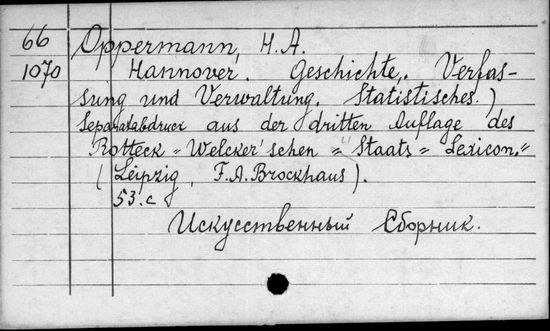 66 Oppermann, H. A.
1070 Hannover. Geschichte, Verfas-
sung und Verwaltung. Statistisches.)
Separatabdruck aus der dritten Auflage des
Rotteck-Welcker'schen "Staats-Lexicon."
(Leipzig, F. A. Brockhaus).
53. с
Искусственный Сборник.